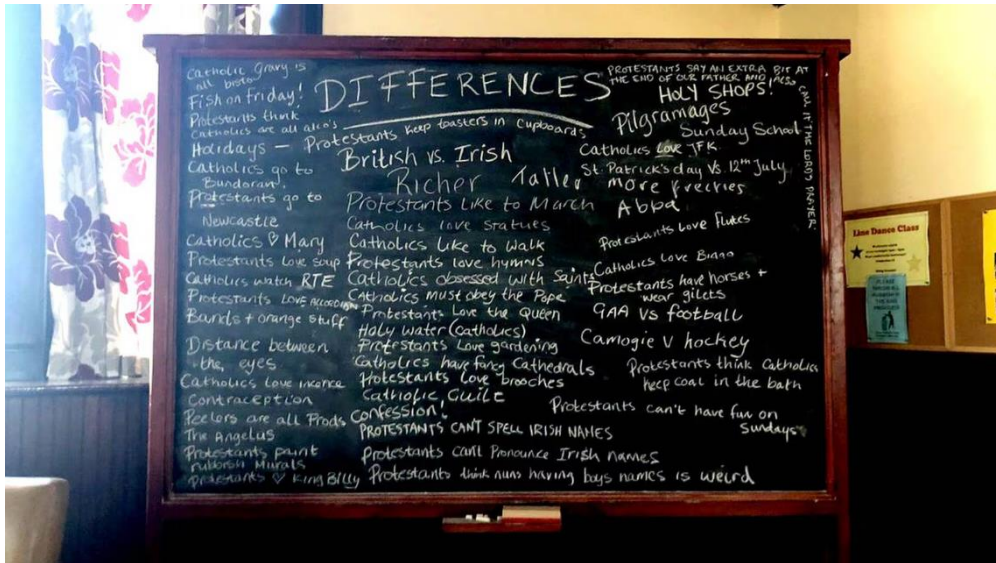 DIFFERENCES
Catholic Gravy is
all bisto
Fish on friday!
Protestants think
Catholics are all alco's
Holidays –
Catholics go to
Bundoran!
Protestants go to
Newcastle
Catholics ♡ Mary
Protestants love soup
Catholics watch RTE
Protestants Love Accordions
Bands + orange stuff
Distance between
the eyes
Catholics love incence
Contraception
Peelers are all Prods
The Angelus
Protestants paint
rubbish Murals
Protestants ♡ King Billy
Protestants keep toasters in cupboards
British vs. Irish
Richer
Taller
Protestants Like to March
Catholics love statues
Catholics like to walk
Protestants love hymns
Catholics obsessed with Saints
Catholics must obey the Pope
Protestants Love the Queen
Holy water (Catholics)
Protestants Love gardening
Catholics have fancy Cathedrals
Protestants love brooches
Catholic Guilt
Confession!
PROTESTANTS CANT SPELL IRISH NAMES
Protestants can't Pronounce Irish names
Protestants think nuns having boys names is weird
PROTESTANTS SAY AN EXTRA BIT AT
THE END OF OUR FATHER AND ALSO
CALL IT THE LORDS PRAYER.
HOLY SHOPS!
Pilgramages
Sunday School
Catholics Love JFK
St. Patrick's day Vs. 12th July
more freckles
Abba
Protestants Love Flutes
Catholics Love Bingo
Protestants have horses +
wear gilets
GAA Vs football
Camogie V hockey
Protestants think Catholics
keep coal in the bath
Protestants can't have fun on
Sundays
Line Dance Class